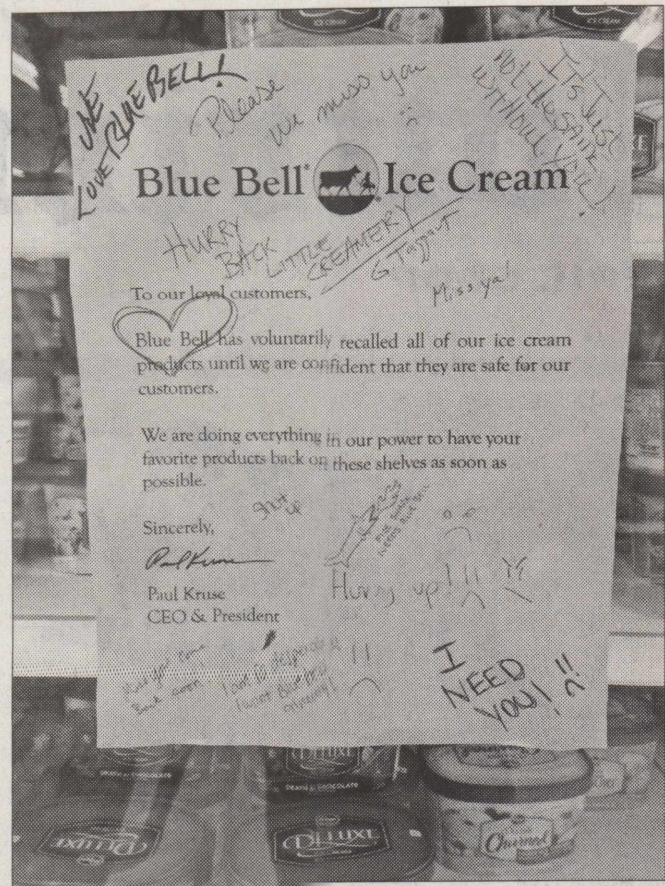 ICE CREAM
ICE CREAM
WE
LOVE BLUE BELL!
Please
we miss you
It's Just
not the same
without you!
Blue Bell® Ice Cream
HURRY
BACK
LITTLE
CREAMERY
G Taggart
Miss ya!
To our loyal customers,
Blue Bell has voluntarily recalled all of our ice cream
products until we are confident that they are safe for our
customers.
We are doing everything in our power to have your
favorite products back on these shelves as soon as
possible.
Sincerely,
Paul Kruse
Paul Kruse
CEO & President
NEEDS BLUE BELL
Hurry up!!!
back soon
I want Blue Bell
I
NEED
YOU!!!
DELUXE
DEATH BY CHOCOLATE
DELUXE
DELUXE
Churned